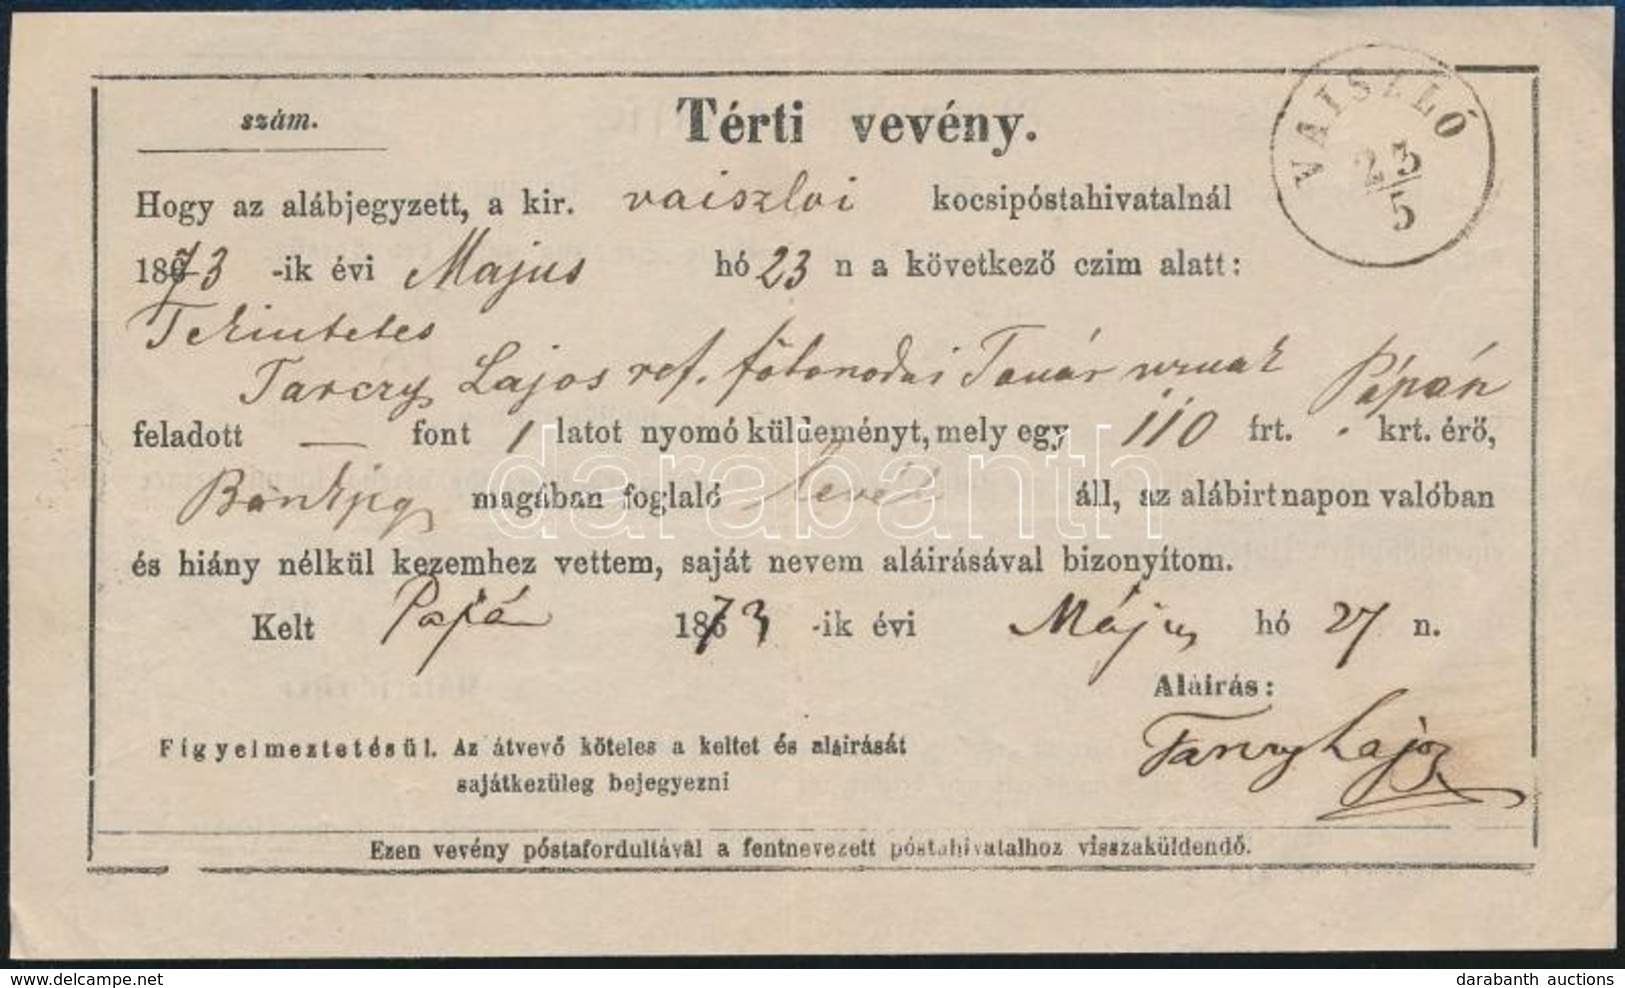 szám.
Térti vevény.
VAISZLÓ
23/5
Hogy az alábjegyzett, a kir. vaiszloi kocsipóstahivatalnál
1873 -ik évi Majus hó 23 n a következő czim alatt:
Tekintetes
Tarczy Lajos ref. főtanodai Tanár urnak Pápán
feladott — font 1 latot nyomó küldeményt, mely egy 110 frt. - krt. érő,
Bankjegy magában foglaló levél áll, az alábirt napon valóban
és hiány nélkül kezemhez vettem, saját nevem aláirásával bizonyítom.
Kelt Pápá 1873 -ik évi Május hó 27 n.
Aláirás:
Tarczy Lajos
Figyelmeztetésül. Az átvevő köteles a keltet és aláirását
sajátkezüleg bejegyezni
Ezen vevény póstafordultával a fentnevezett póstahivatalhoz visszaküldendő.
darabanth
delcampe.net
darabanth auctions